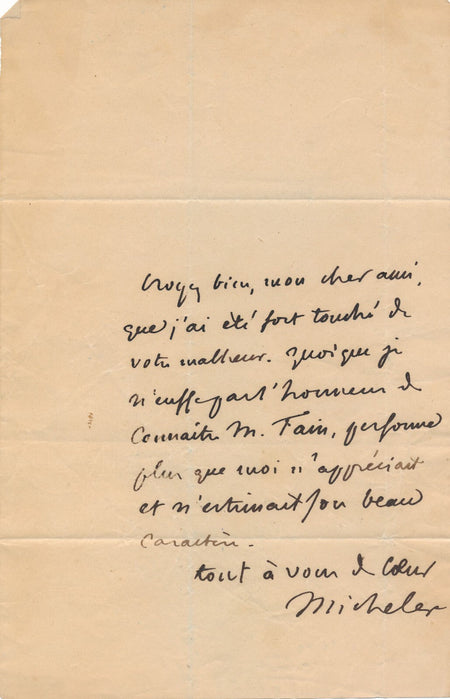 Croyez bien, mon cher ami,
que j'ai été fort touché de
votre malheur. Quoique je
n'eusse pas l'honneur de
connaître M. Fain, personne
plus que moi n'appréciait
et n'estimait son beau
caractère.
tout à vous de cœur
Michelet